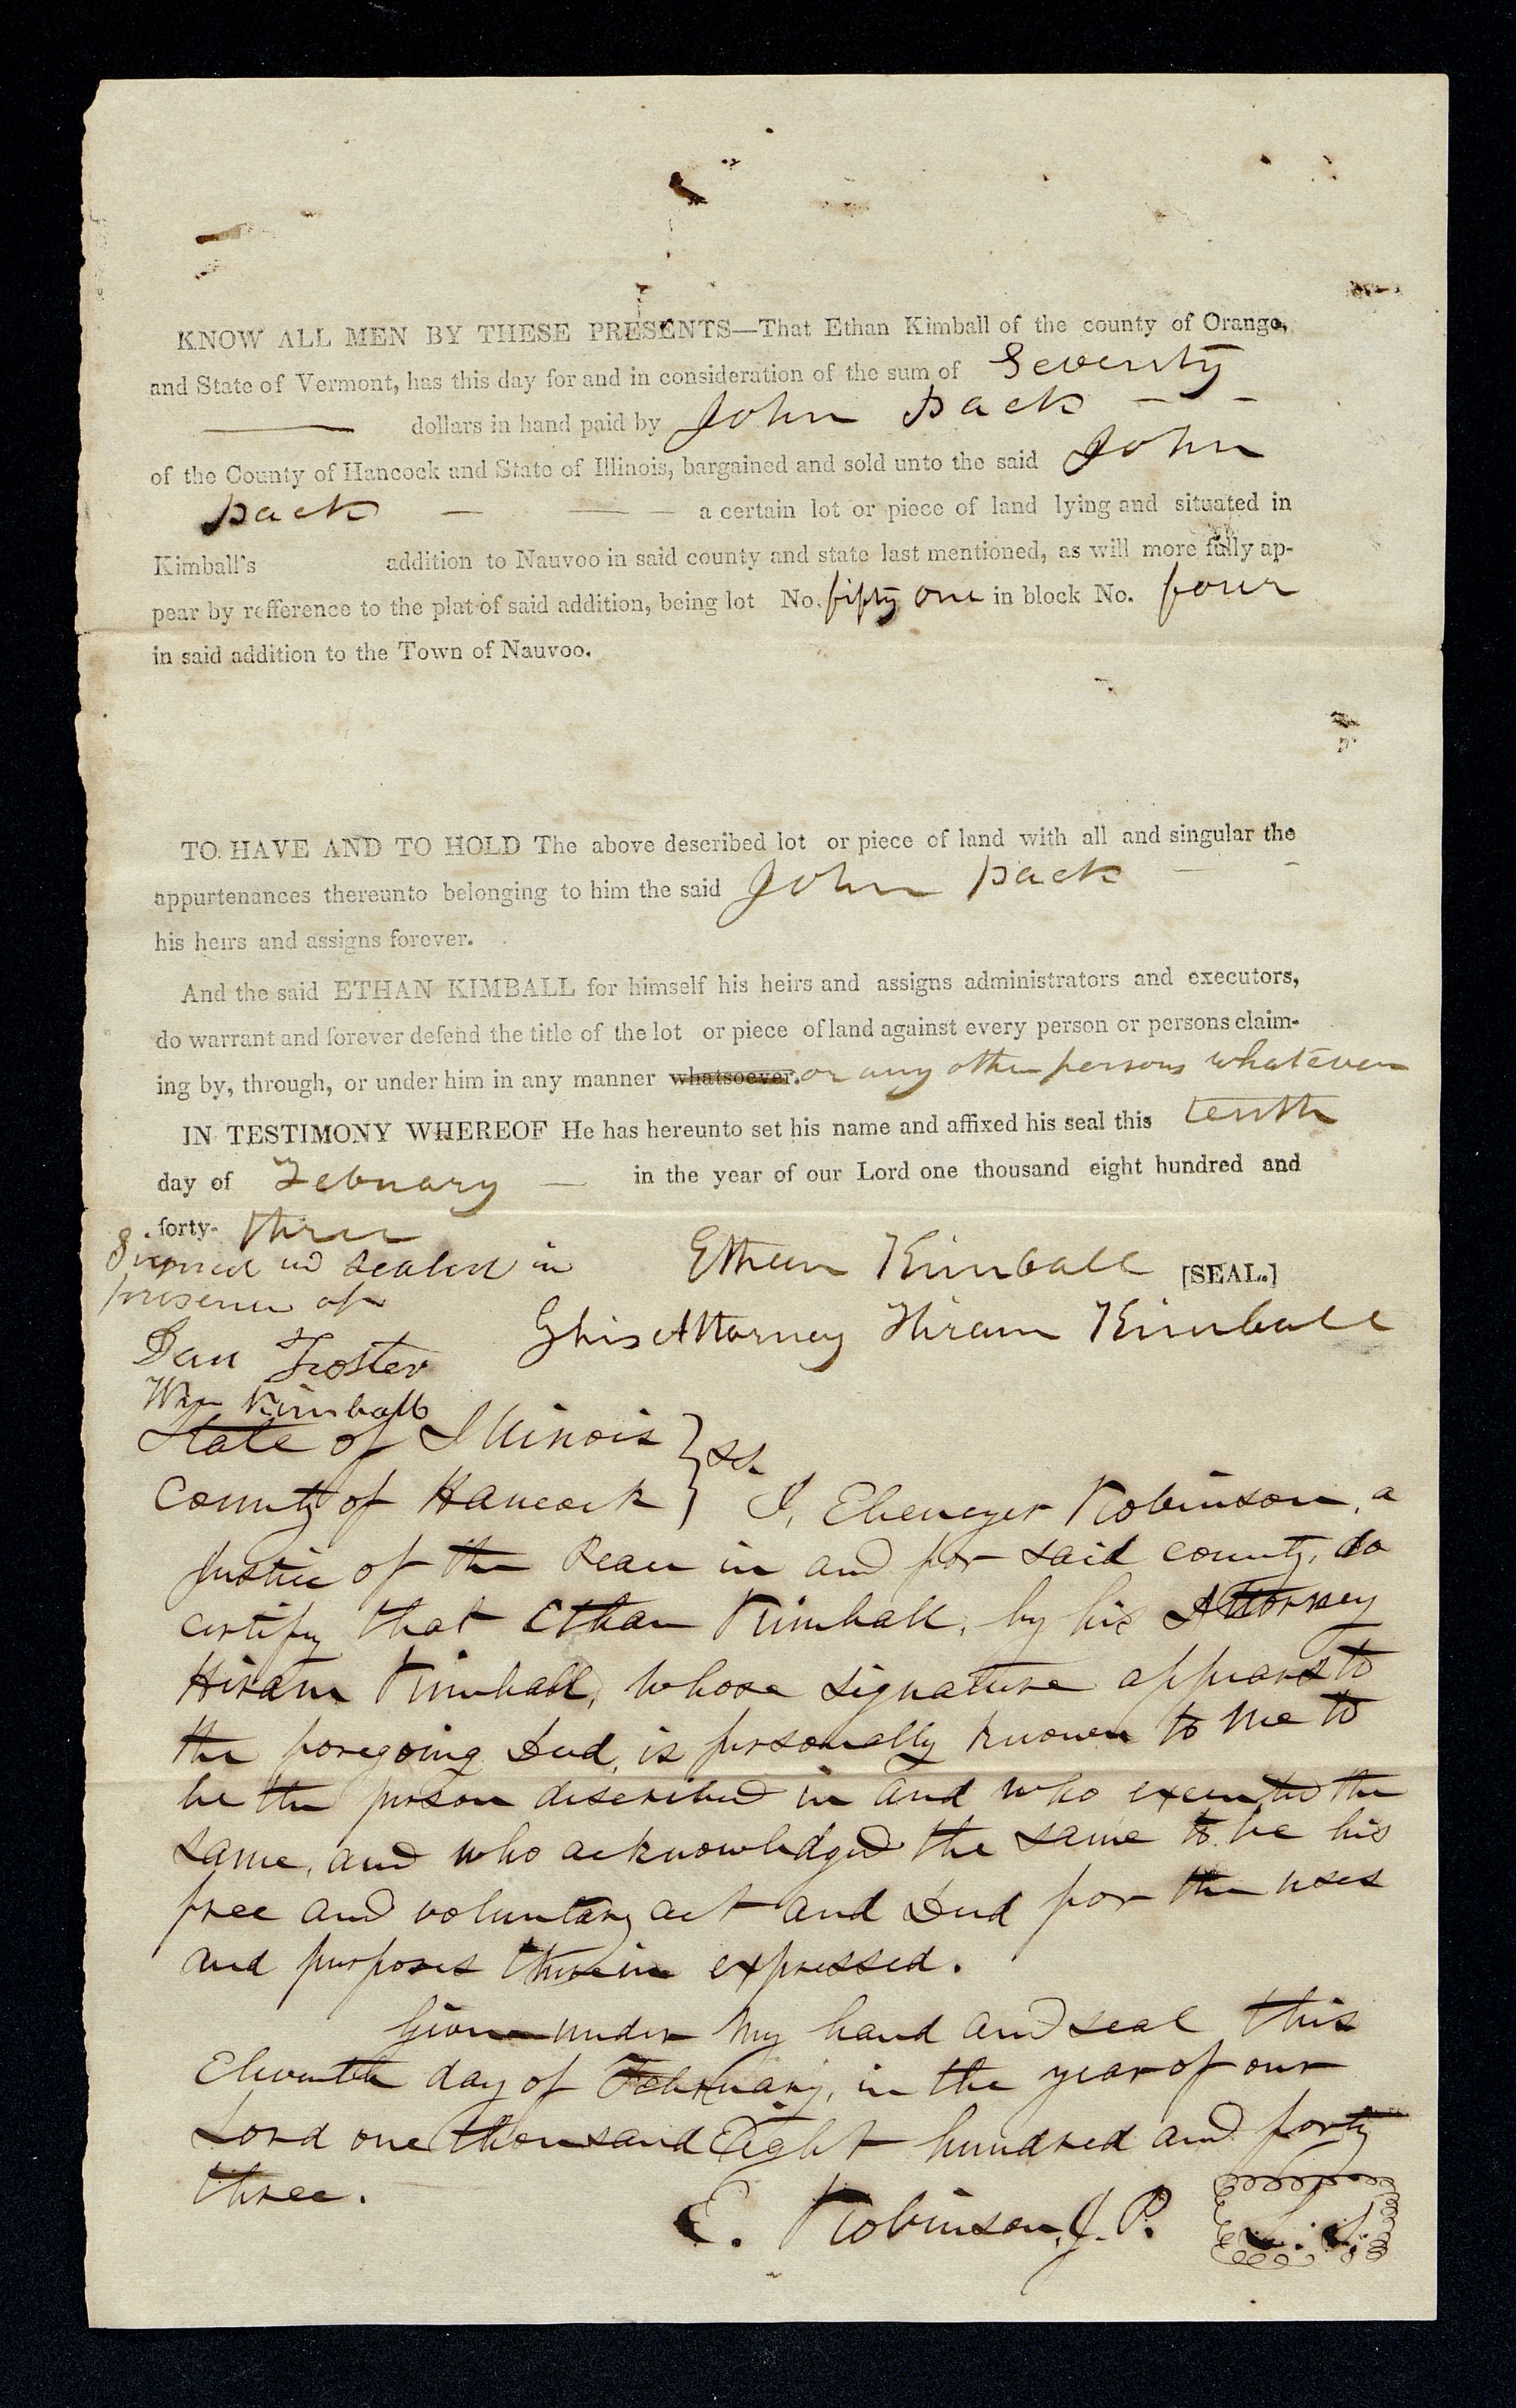 KNOW ALL MEN BY THESE PRESENTS—That Ethan Kimball of the county of Orange,
and State of Vermont, has this day for and in consideration of the sum of Seventy
—— dollars in hand paid by John Pack — –
of the County of Hancock and State of Illinois, bargained and sold unto the said John
Pack — —— — a certain lot or piece of land lying and situated in
Kimball's addition to Nauvoo in said county and state last mentioned, as will more fully ap-
pear by refference to the plat of said addition, being lot No. fifty one in block No. four
in said addition to the Town of Nauvoo.
TO HAVE AND TO HOLD The above described lot or piece of land with all and singular the
appurtenances thereunto belonging to him the said John Pack –
his heirs and assigns forever.
And the said ETHAN KIMBALL for himself his heirs and assigns administrators and executors,
do warrant and forever defend the title of the lot or piece of land against every person or persons claim-
ing by, through, or under him in any manner whatsoever. or any other persons whatever
IN TESTIMONY WHEREOF He has hereunto set his name and affixed his seal this tenth
day of Febuary — in the year of our Lord one thousand eight hundred and
forty- three
Signed nd sealed in Ethan Kimball [SEAL.]
presence of
By his Attorney Hiram Kimball
Dan Foster
Wm Kimball
State of Illinois } ss.
County of Hancock } I, Ebenezer Robinson, a
Justice of the Peace in and for said county, do
certify that Ethan Kimball, by his Attorney
Hiram Kimball, whose signature appears to
the foregoing Deed, is personally known to me to
be the person described in and who executed the
same, and who acknowledged the same to be his
free and voluntary act and Deed for the uses
and purposes therein expressed.
Given under my hand and seal this
Eleventh day of February, in the year of our
Lord one thousand Eight hundred and forty
three.
E. Robinson, J. P. L. S.